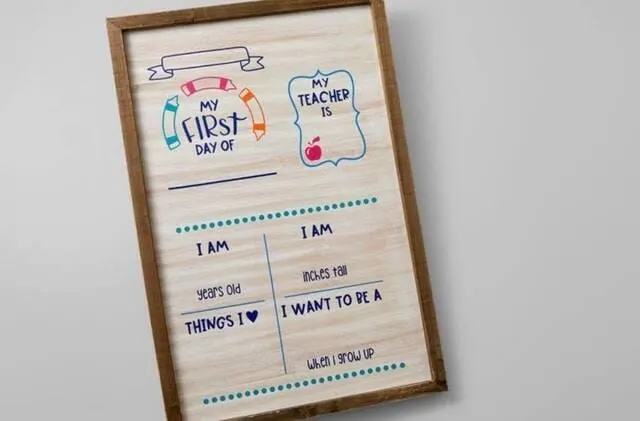 MY
FIRST
DAY OF
MY
TEACHER
IS
I AM
years old
I AM
inches tall
THINGS I ♥
I WANT TO BE A
when I grow up